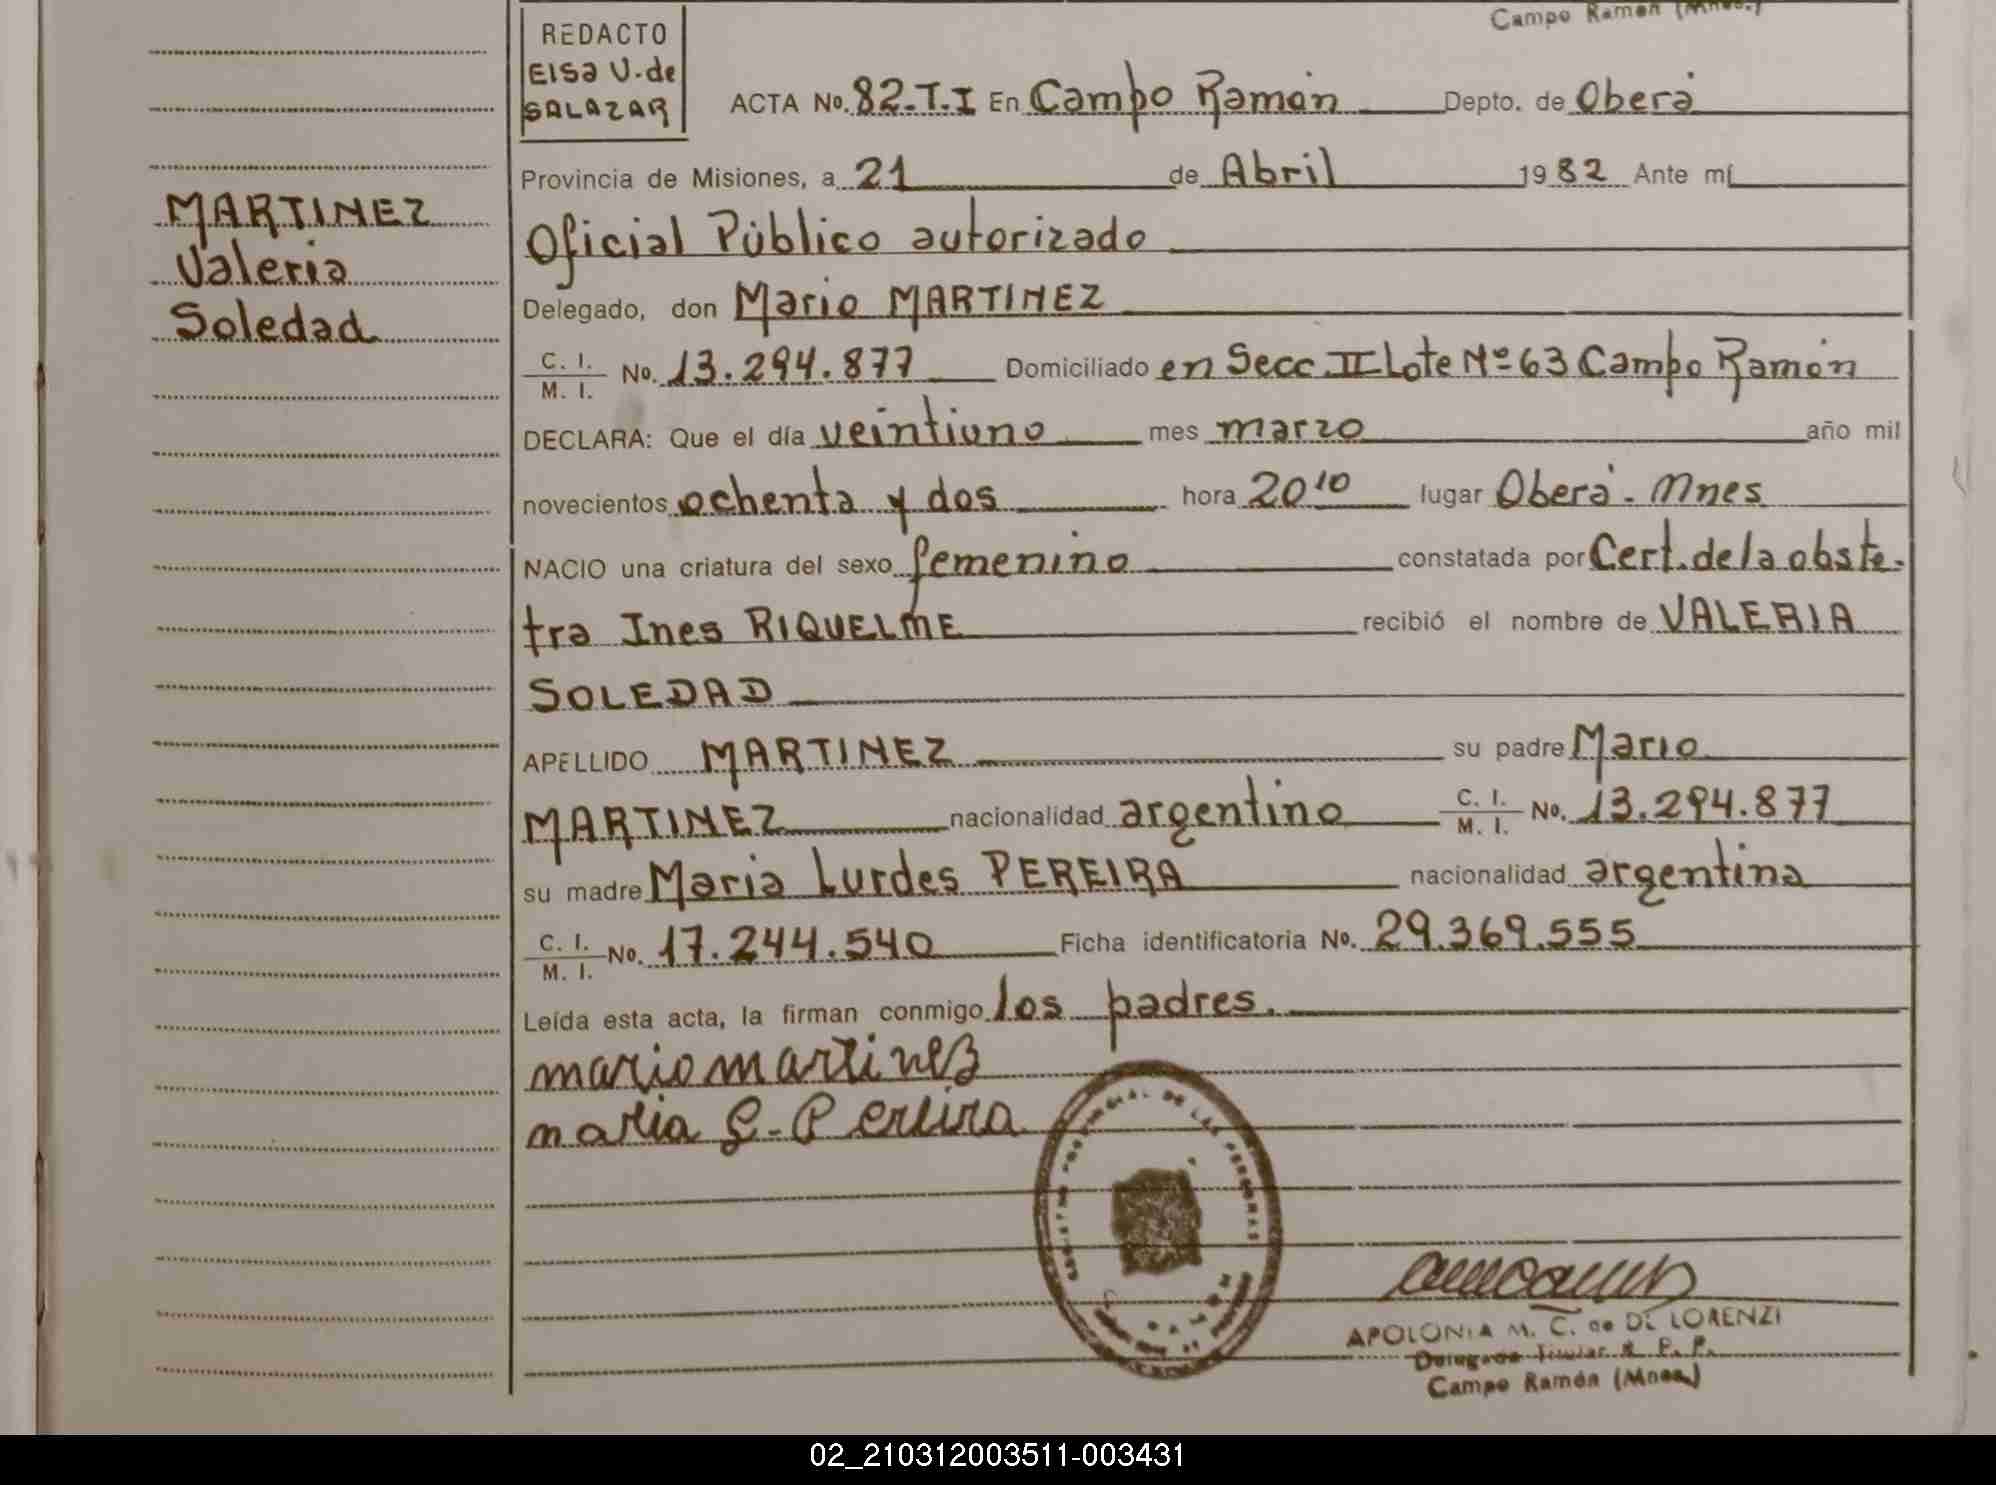 Campo Ramón (Mnes.)
REDACTO
Elsa V. de
SALAZAR
ACTA No. 82-T.I En Campo Ramón Depto. de Oberá
Provincia de Misiones, a 21 de Abril 1982 Ante mí
Oficial Público autorizado
MARTINEZ
Valeria
Soledad
Delegado, don Mario MARTINEZ
C. I.
M. I. No. 13.294.877 Domiciliado en Secc II Lote Nº 63 Campo Ramón
DECLARA: Que el día veintiuno mes marzo año mil
novecientos ochenta y dos hora 20¹⁰ lugar Oberá - Mnes
NACIO una criatura del sexo femenino constatada por Cert. de la obste-
tra Ines RIQUELME recibió el nombre de VALERIA
SOLEDAD
APELLIDO MARTINEZ su padre Mario
MARTINEZ nacionalidad argentino C. I.
M. I. No. 13.294.877
su madre Maria Lurdes PEREIRA nacionalidad argentina
C. I.
M. I. No. 17.244.540 Ficha identificatoria No. 29.369.555
Leída esta acta, la firman conmigo los padres.
mario martinez
maria L. Pereira
REGISTRO PROVINCIAL DE LAS PERSONAS
APOLONIA M. C. de DE LORENZI
Delegada Titular R. P. P.
Campo Ramón (Mnes.)
02_210312003511-003431